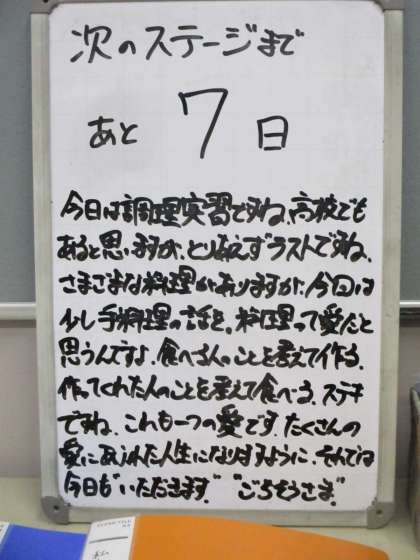 次のステージまで
あと 7 日
今日は調理実習ですね、高校でも
あると思いますが、とりあえずラストですね。
さまざまな料理がありますが、今回は
少し手料理の話を。料理って愛だと
思うんですよ。食べる人のことを考えて作る。
作ってくれた人のことを考えて食べる。ステキ
ですね。これも一つの愛です。たくさんの
愛にあふれた人生になりますように、それでは
今日も"いただきます" "ごちそうさま"